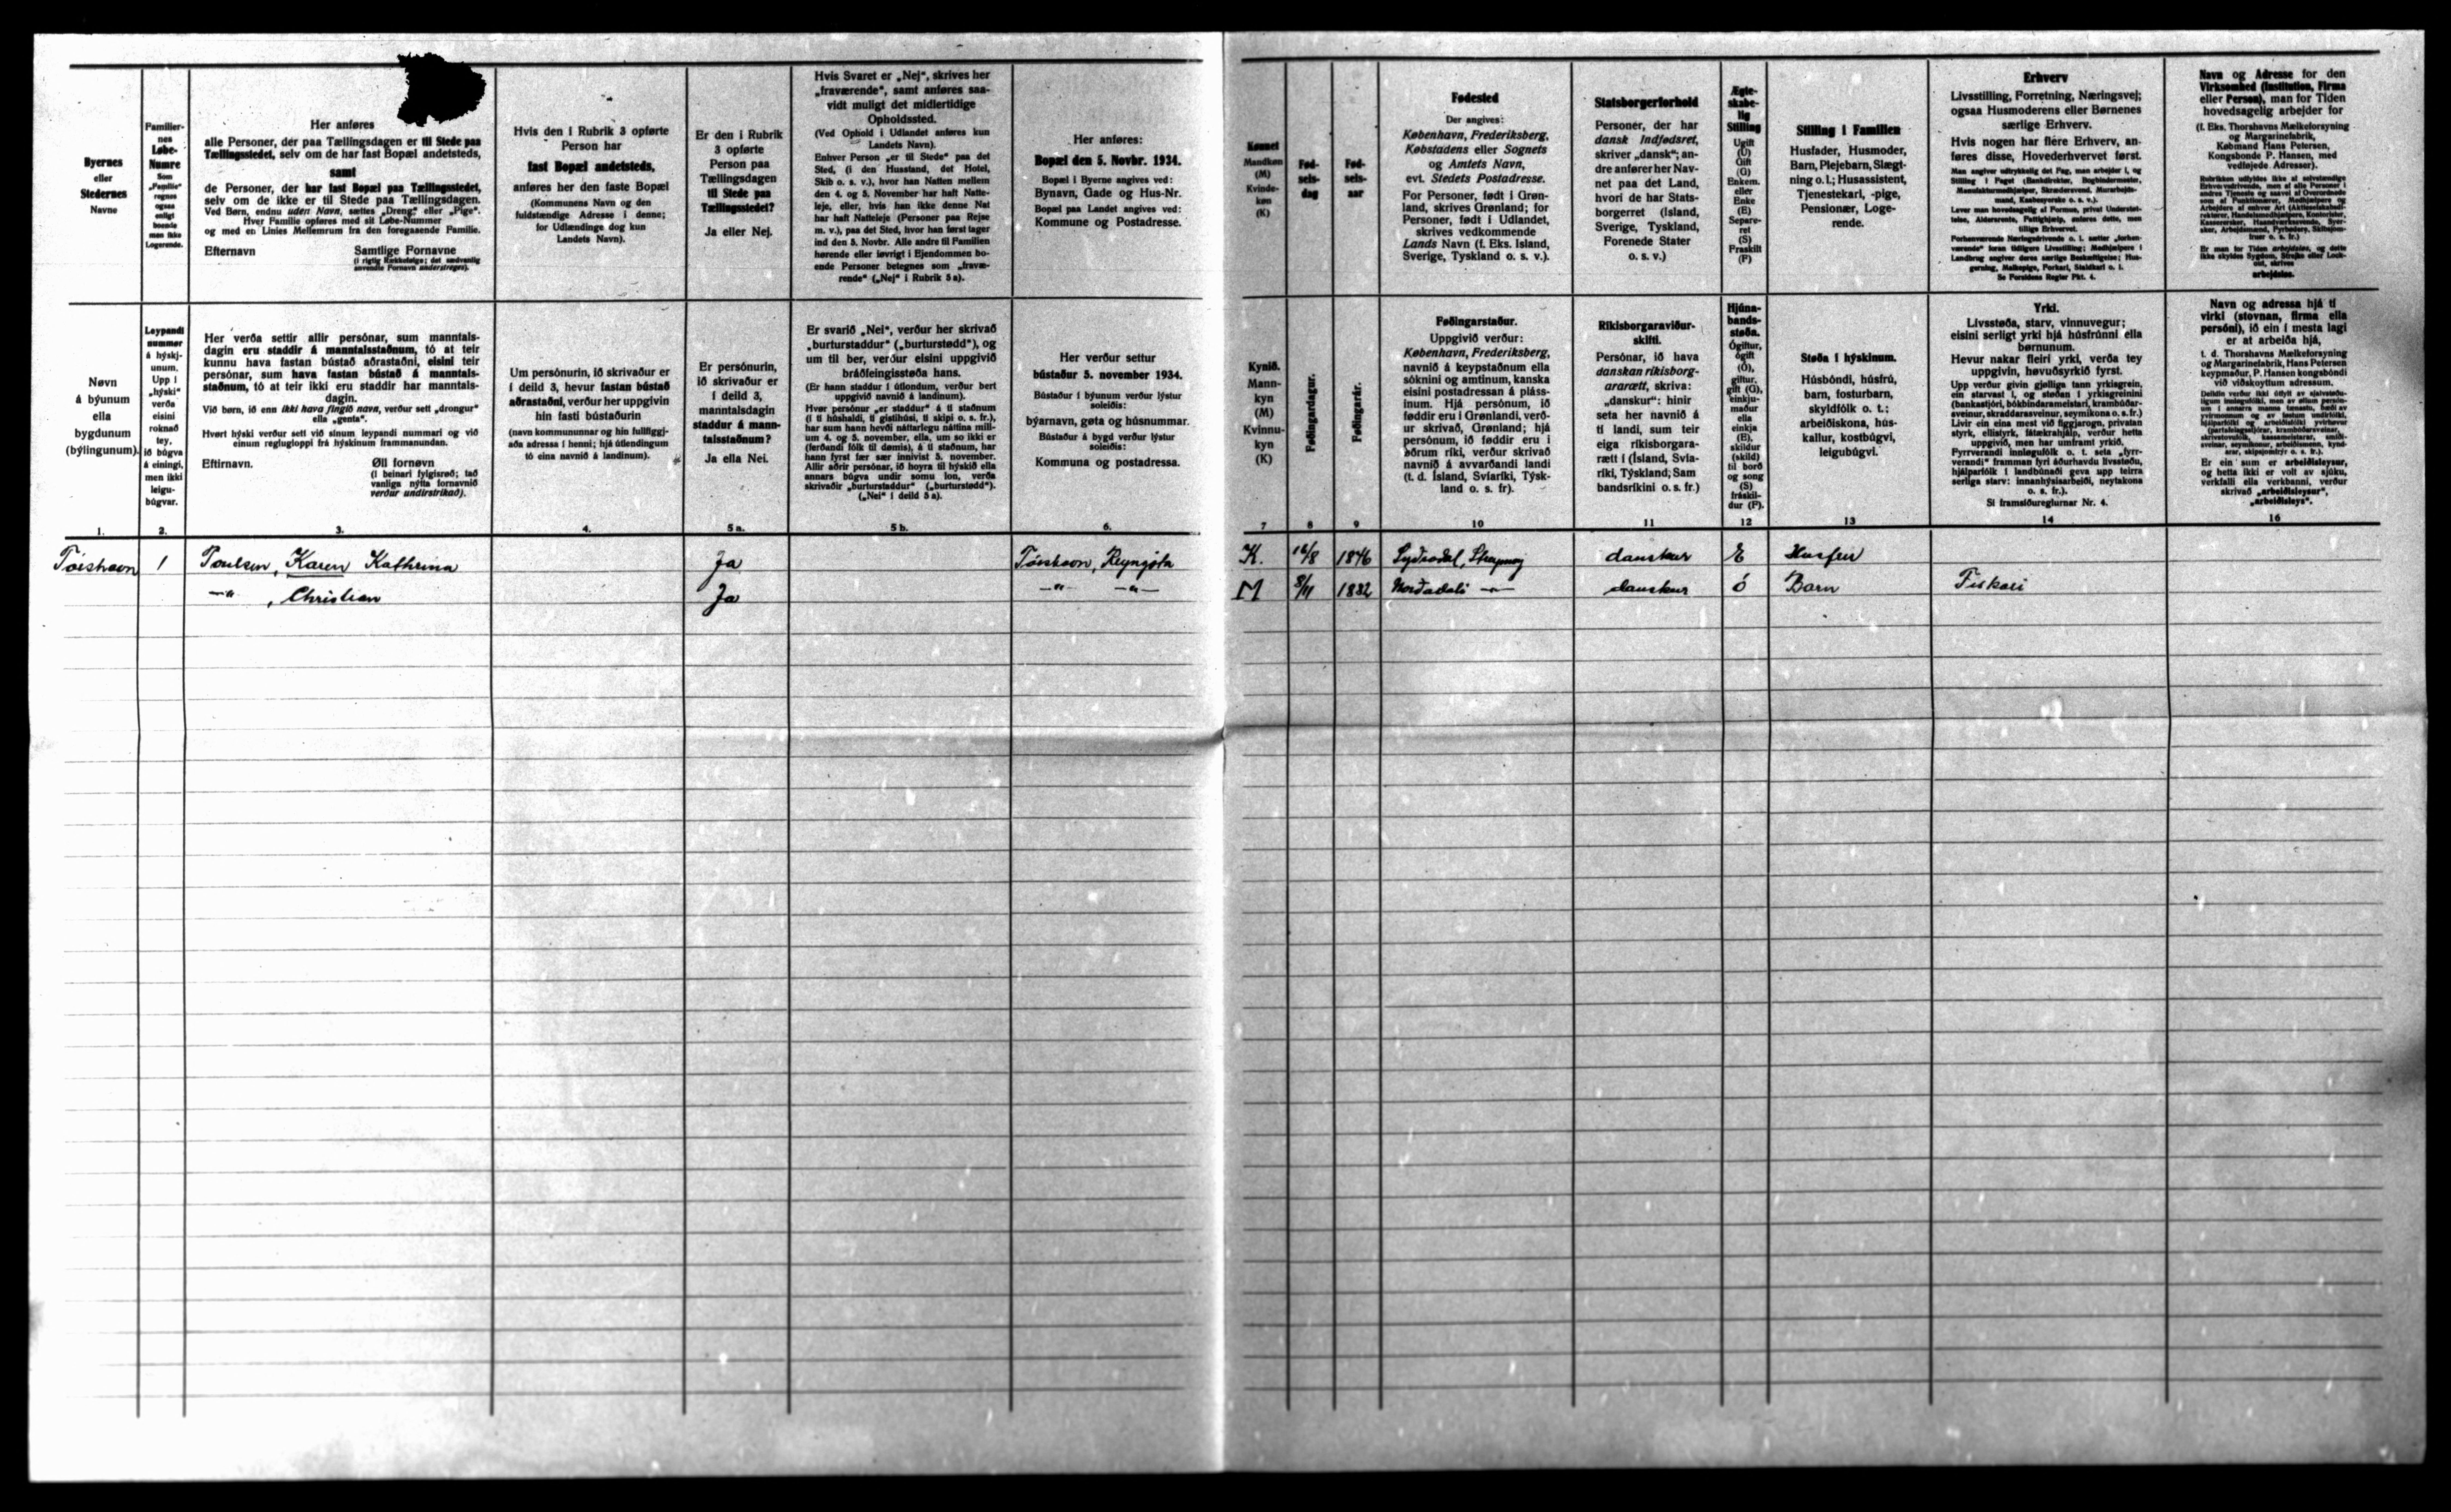 Byernes
eller
Stedernes
Navne
Familier-
nes
Løbe-
Numre
Som
„Familie"
regnes
ogsaa
enligt
boende
men ikke
Logerende.
Her anføres
alle Personer, der paa Tællingsdagen er til Stede paa
Tællingsstedet, selv om de har fast Bopæl andetsteds,
samt
de Personer, der har fast Bopæl paa Tællingsstedet,
selv om de ikke er til Stede paa Tællingsdagen.
Ved Børn, endnu uden Navn, sættes „Dreng" eller „Pige".
Hver Familie opføres med sit Løbe-Nummer
og med en Linies Mellemrum fra den foregaaende Familie.
Efternavn Samtlige Fornavne
(i rigtig Rækkefølge; det sædvanlig
anvendte Fornavn understreges).
Hvis den i Rubrik 3 opførte
Person har
fast Bopæl andetsteds,
anføres her den faste Bopæl
(Kommunens Navn og den
fuldstændige Adresse i denne;
for Udlændinge dog kun
Landets Navn).
Er den i Rubrik
3 opførte
Person paa
Tællingsdagen
til Stede paa
Tællingsstedet?
Ja eller Nej.
Hvis Svaret er „Nej", skrives her
„fraværende", samt anføres saa-
vidt muligt det midlertidige
Opholdssted.
(Ved Ophold i Udlandet anføres kun
Landets Navn).
Enhver Person „er til Stede" paa det
Sted, (i den Husstand, det Hotel,
Skib o. s. v.), hvor han Natten mellem
den 4. og 5. November har haft Natte-
leje, eller, hvis han ikke denne Nat
har haft Natteleje (Personer paa Rejse
m. v.), paa det Sted, hvor han først tager
ind den 5. Novbr. Alle andre til Familien
hørende eller iøvrigt i Ejendommen bo-
ende Personer betegnes som „fravæ-
rende" („Nej" i Rubrik 5 a).
Her anføres:
Bopæl den 5. Novbr. 1934.
Bopæl i Byerne angives ved:
Bynavn, Gade og Hus-Nr.
Bopæl paa Landet angives ved:
Kommune og Postadresse.
Kønnet
Mandkøn
(M)
Kvinde-
køn
(K)
Fød-
sels-
dag
Fød-
sels-
aar
Fødested
Der angives:
København, Frederiksberg,
Købstadens eller Sognets
og Amtets Navn,
evt. Stedets Postadresse.
For Personer, født i Grøn-
land, skrives Grønland; for
Personer, født i Udlandet,
skrives vedkommende
Lands Navn (f. Eks. Island,
Sverige, Tyskland o. s. v.).
Statsborgerforhold
Personer, der har
dansk Indfødsret,
skriver „dansk"; an-
dre anfører her Nav-
net paa det Land,
hvori de har Stats-
borgerret (Island,
Sverige, Tyskland,
Forenede Stater
o. s. v.)
Ægte-
skabe-
lig
Stilling
Ugift
(U)
Gift
(G)
Enkem.
eller
Enke
(E)
Separe-
ret
(S)
Fraskilt
(F)
Stilling i Familien
Husfader, Husmoder,
Barn, Plejebarn, Slægt-
ning o. l.; Husassistent,
Tjenestekarl, -pige,
Pensionær, Loge-
rende.
Erhverv
Livsstilling, Forretning, Næringsvej;
ogsaa Husmoderens eller Børnenes
særlige Erhverv.
Hvis nogen har flere Erhverv, an-
føres disse, Hovederhvervet først.
Man angiver udtrykkelig det Fag, man arbejder i, og
Stilling i Faget (Bankdirektør, Bogbindermester,
Manufakturmedhjælper, Skrædersvend, Murarbejds-
mand, Kasbesyerske o. s. v.).
Lever man hovedsagelig af Formue, privat Understøt-
telse, Aldersrente, Fattighjælp, anføres dette, men
tillige Erhvervet.
Forhenværende Næringsdrivende o. l. sætter „forhen-
værende" foran tidligere Livsstilling; Medhjælpere i
Landbrug angiver deres særlige Beskæftigelse; Hus-
gerning, Malkepige, Forkarl, Staldkarl o. l.
Se Forsidens Regler Pkt. 4.
Navn og Adresse for den
Virksomhed (Institution, Firma
eller Person), man for Tiden
hovedsagelig arbejder for
(f. Eks. Thorshavns Mælkeforsyning
og Margarinefabrik,
Købmand Hans Petersen,
Kongsbonde P. Hansen, med
vedføjede Adresser).
Er man for Tiden arbejdsløs, og dette
ikke skyldes Sygdom, Strejke eller Lock-
out, skrives
arbejdsløs.
Nøvn
á býunum
ella
bygdunum
(býlingunum).
Leypandi
nummør
á hýskj-
unum.
Upp í
„hýski"
verða
eisini
roknað
tey,
ið búgva
á einingi,
men ikki
leigu-
búgvar.
Her verða settir allir persónar, sum manntals-
dagin eru staddir á manntalsstaðnum, tó at teir
kunnu hava fastan bústað aðrastaðni, eisini teir
persónar, sum hava fastan bústað á manntals-
staðnum, tó at teir ikki eru staddir har manntals-
dagin.
Við børn, ið enn ikki hava fingið navn, verður sett „drongur"
ella „genta".
Hvørt hýski verður sett við sínum leypandi nummari og við
einum reglugloppi frá hýskinum frammanundan.
Eftirnavn. Øll fornøvn
(í beinari fylgisrøð; tað
vanliga nýtta fornavnið
verður undirstrikað).
Um persónurin, ið skrivaður er
í deild 3, hevur fastan bústað
aðrastaðni, verður her uppgivin
hin fasti bústaðurin
(navn kommununnar og hin fullfíggj-
aða adressa í henni; hjá útlendingum
tó eina navnið á landinum).
Er persónurin,
ið skrivaður er
í deild 3,
manntalsdagin
staddur á mann-
talsstaðnum?
Ja ella Nei.
Er svarið „Nei", verður her skrivað
„burturstaddur" („burturstødd"), og
um til ber, verður eisini uppgivið
bráðfeingisstøða hans.
(Er hann staddur í útlondum, verður bert
uppgivið navnið á landinum).
Hvør persónur „er staddur" á tí staðnum
(í tí húshaldi, tí gistihúsi, tí skipi o. s. fr.),
har sum hann hevði náttarlegu náttina milli-
um 4. og 5. november, ella, um so ikki er
(ferðandi fólk til dømis), á tí staðnum, har
hann fyrst fær sær innivist 5. november.
Allir aðrir persónar, ið hoyra til hýskið ella
annars búgva undir somu lon, verða
skrivaðir „burturstaddur" („burturstødd").
(„Nei" í deild 5 a).
Her verður settur
bústaður 5. november 1934.
Bústaður í býunum verður lýstur
soleiðis:
býarnavn, gøta og húsnummar.
Bústaður á bygd verður lýstur
soleiðis:
Kommuna og postadressa.
Kynið.
Mann-
kyn
(M)
Kvinnu-
kyn
(K)
Føðingardagur.
Føðingarár.
Føðingarstaður.
Uppgivið verður:
København, Frederiksberg,
navnið á keypstaðnum ella
sóknini og amtinum, kanska
eisini postadressan á pláss-
inum. Hjá persónum, ið
føddir eru í Grønlandi, verð-
ur skrivað, Grønland; hjá
persónum, ið føddir eru í
øðrum ríki, verður skrivað
navnið á avvarðandi landi
(t. d. Ísland, Svíaríki, Týsk-
land o. s. fr).
Ríkisborgaraviður-
skifti.
Persónar, ið hava
danskan ríkisborg-
ararætt, skriva:
„danskur": hinir
seta her navnið á
tí landi, sum teir
eiga ríkisborgara-
rætt í (Ísland, Svía-
ríki, Týskland; Sam
bandsríkini o. s. fr.)
Hjúna-
bands-
støða.
Ógiftur,
ógift
(Ó),
giftur,
gift (G),
einkju-
maður
ella
einkja
(E),
skildur
(skild)
til borð
og song
(S)
fráskil-
dur (F).
Støða í hýskinum.
Húsbóndi, húsfrú,
barn, fosturbarn,
skyldfólk o. t.;
arbeiðiskona, hús-
kallur, kostbúgvi,
leigubúgvi.
Yrki.
Livsstøða, starv, vinnuvegur;
eisini serligt yrki hjá húsfrúnni ella
børnunum.
Hevur nakar fleiri yrki, verða tey
uppgivin, høvuðsyrkið fyrst.
Upp verður givin gjølliga tann yrkisgrein,
ein starvast í, og støðan í yrkisgreinini
(bankastjóri, bókbindarameistari, krambúðar-
sveinur, skraddarasveinur, seymikona o. s. fr.)
Livir ein eina mest við fíggjarogn, privatan
styrk, ellistyrk, fátækrahjálp, verður hetta
uppgivið, men har umframt yrkið.
Fyrrverandi innløgufólk o. t. seta „fyrr-
verandi" framman fyri áðurhavdu livsstøðu,
hjálparfólk í landbúnaði geva upp teirra
serliga starv: innanhýsisarbeiði, neytakona
o. s. fr.).
Sí framsíðureglurnar Nr. 4.
Navn og adressa hjá tí
virki (stovnan, firma ella
persóni), ið ein í mesta lagi
er at arbeiða hjá,
t. d. Thorshavns Mælkeforsyning
og Margarinefabrik, Hans Petersen
keypmaður, P. Hansen kongsbóndi
við viðskoyttum adressum.
Er ein sum er arbeiðsleysur,
og hetta ikki er volt av sjúku,
verkfalli ella verkbanni, verður
skrivað „arbeiðsleysur",
„arbeiðsleys".
1. 2. 3. 4. 5 a. 5 b. 6. 7 8 9 10 11 12 13 14 16
Tórshavn 1 Poulsen, Karen Kathrina Ja Tórshavn, Reyngøta K. 16/8 1846 danskur E Husfru
—"— , Christian Ja —"— —"— M 8/11 1882 Norðadali —"— danskur ó Barn Fiskari